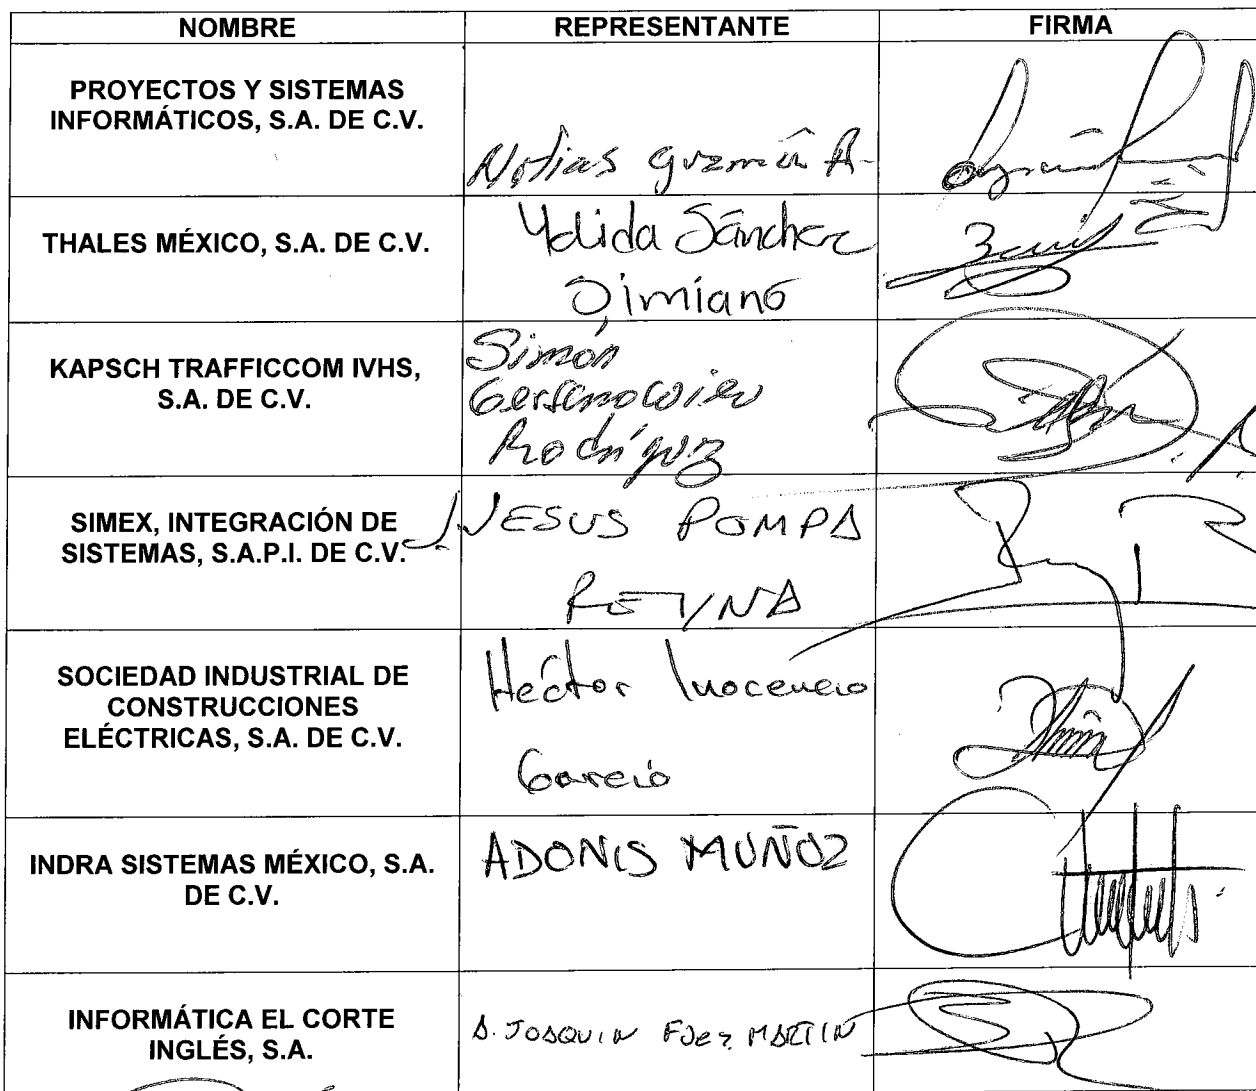 NOMBRE REPRESENTANTE FIRMA
PROYECTOS Y SISTEMAS
INFORMÁTICOS, S.A. DE C.V.
Guzmán A.
THALES MÉXICO, S.A. DE C.V.
Yolida Sánchez
KAPSCH TRAFFICCOM IVHS,
S.A. DE C.V.
Simón
Rodríguez
SIMEX, INTEGRACIÓN DE
SISTEMAS, S.A.P.I. DE C.V.
J. JESUS POMPA
REYNA
SOCIEDAD INDUSTRIAL DE
CONSTRUCCIONES
ELÉCTRICAS, S.A. DE C.V.
Héctor Inocencio
García
INDRA SISTEMAS MÉXICO, S.A.
DE C.V.
ADONIS MUÑOZ
INFORMÁTICA EL CORTE
INGLÉS, S.A.
A. JOAQUIN Fdez MARTIN